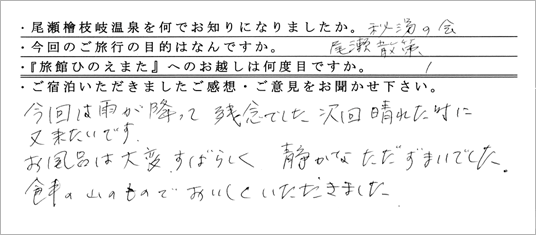 ・尾瀬檜枝岐温泉を何でお知りになりましたか。秘湯の会
・今回のご旅行の目的はなんですか。 尾瀬散策
・『旅館ひのえまた』へのお越しは何度目ですか。 1
・ご宿泊いただきましたご感想・ご意見をお聞かせ下さい。
今回は雨が降って 残念でした 次回晴れた時に
又来たいです。
お風呂は大変すばらしく 静かなただずまいでした。
食事の山のものでおいしくいただきました